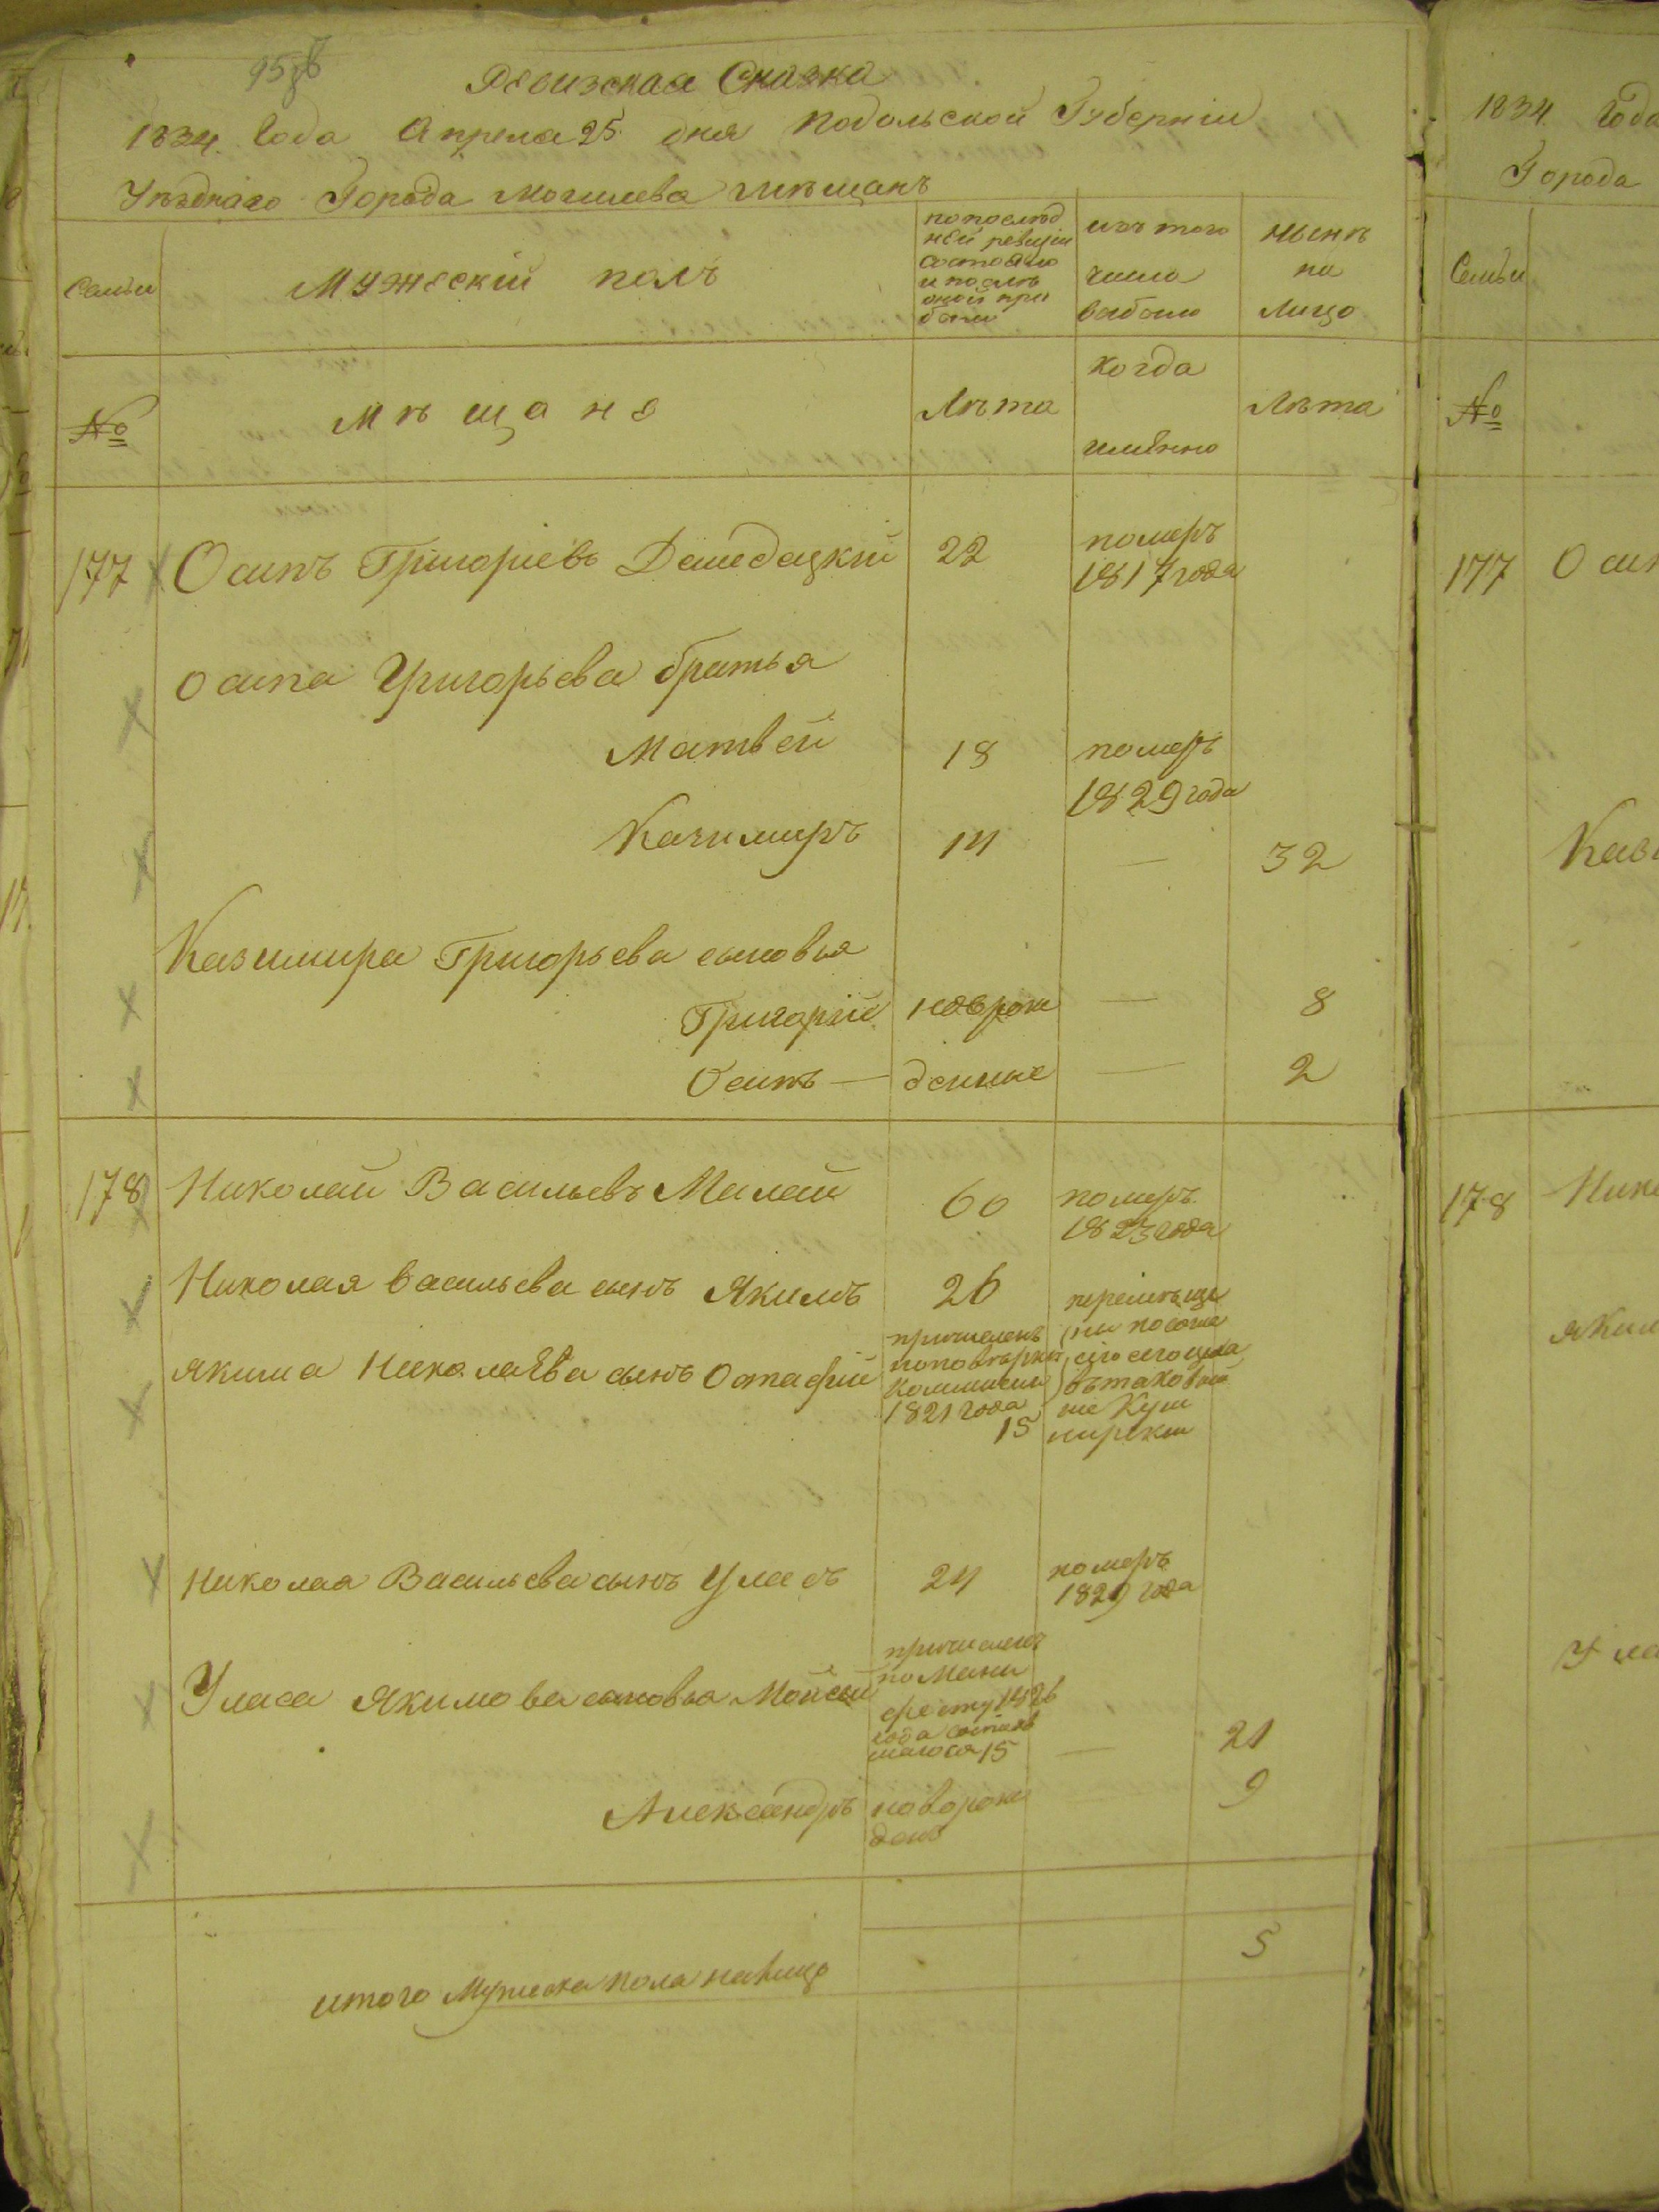 Ревизская Сказка
1834. Года Апреля 25 дня Подольской Губернiи
Уѣзднаго Города Могилева мѣщанъ
Семьи
Мужескiй полъ
по послѣд
ней ревизiи
состояло
и послѣ
оной при
было
изъ того
числа
выбыло
нынѣ
на
лицо
№
Мѣщане
Лѣта
когда
имянно
Лѣта
177 Осипъ Григорiевъ 22 померъ
1817 года
Осипа Григорьева братья
Матвей 18 померъ
1829 года
Казимиръ 14 — 32
Казимира Григорьева сыновья
Григорiй новорож — 8
Осипъ — денные — 2
178 Николай Васильевъ Малай 60 померъ
1823 года
Николая Васильева сынъ Якимъ 26
Якима Николаева сынъ Остафiй
причисленъ
по повѣрки
коммисiи
1821 года
15
перемѣще
ны
Николая Васильева сынъ Уласъ 24 померъ
1829 года
Уласа Якимова сыновья Мойсей
причисленъ
по Мани
фесту 1826
года состояв
шагося 15 — 21
Александръ новорож — 9
денъ
итого Мужеска пола налицо 5
1834. Года
Города
Семьи
№
177 Осип
Кази
178 Нико
Яким
Ула